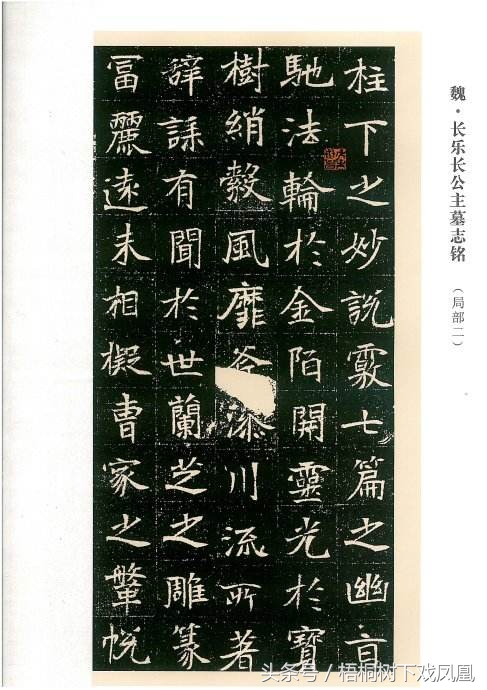 魏·长乐长公主墓志铭
（局部二）
柱下之妙說覈七篇之幽旨
馳法輪於金陌開靈光於寶
樹綃縠風靡川流所著
辭誄有聞於世蘭芝之雕篆
冨麗遠未相擬曹家之鞶帨
头条号 / 梧桐树下戏凤凰